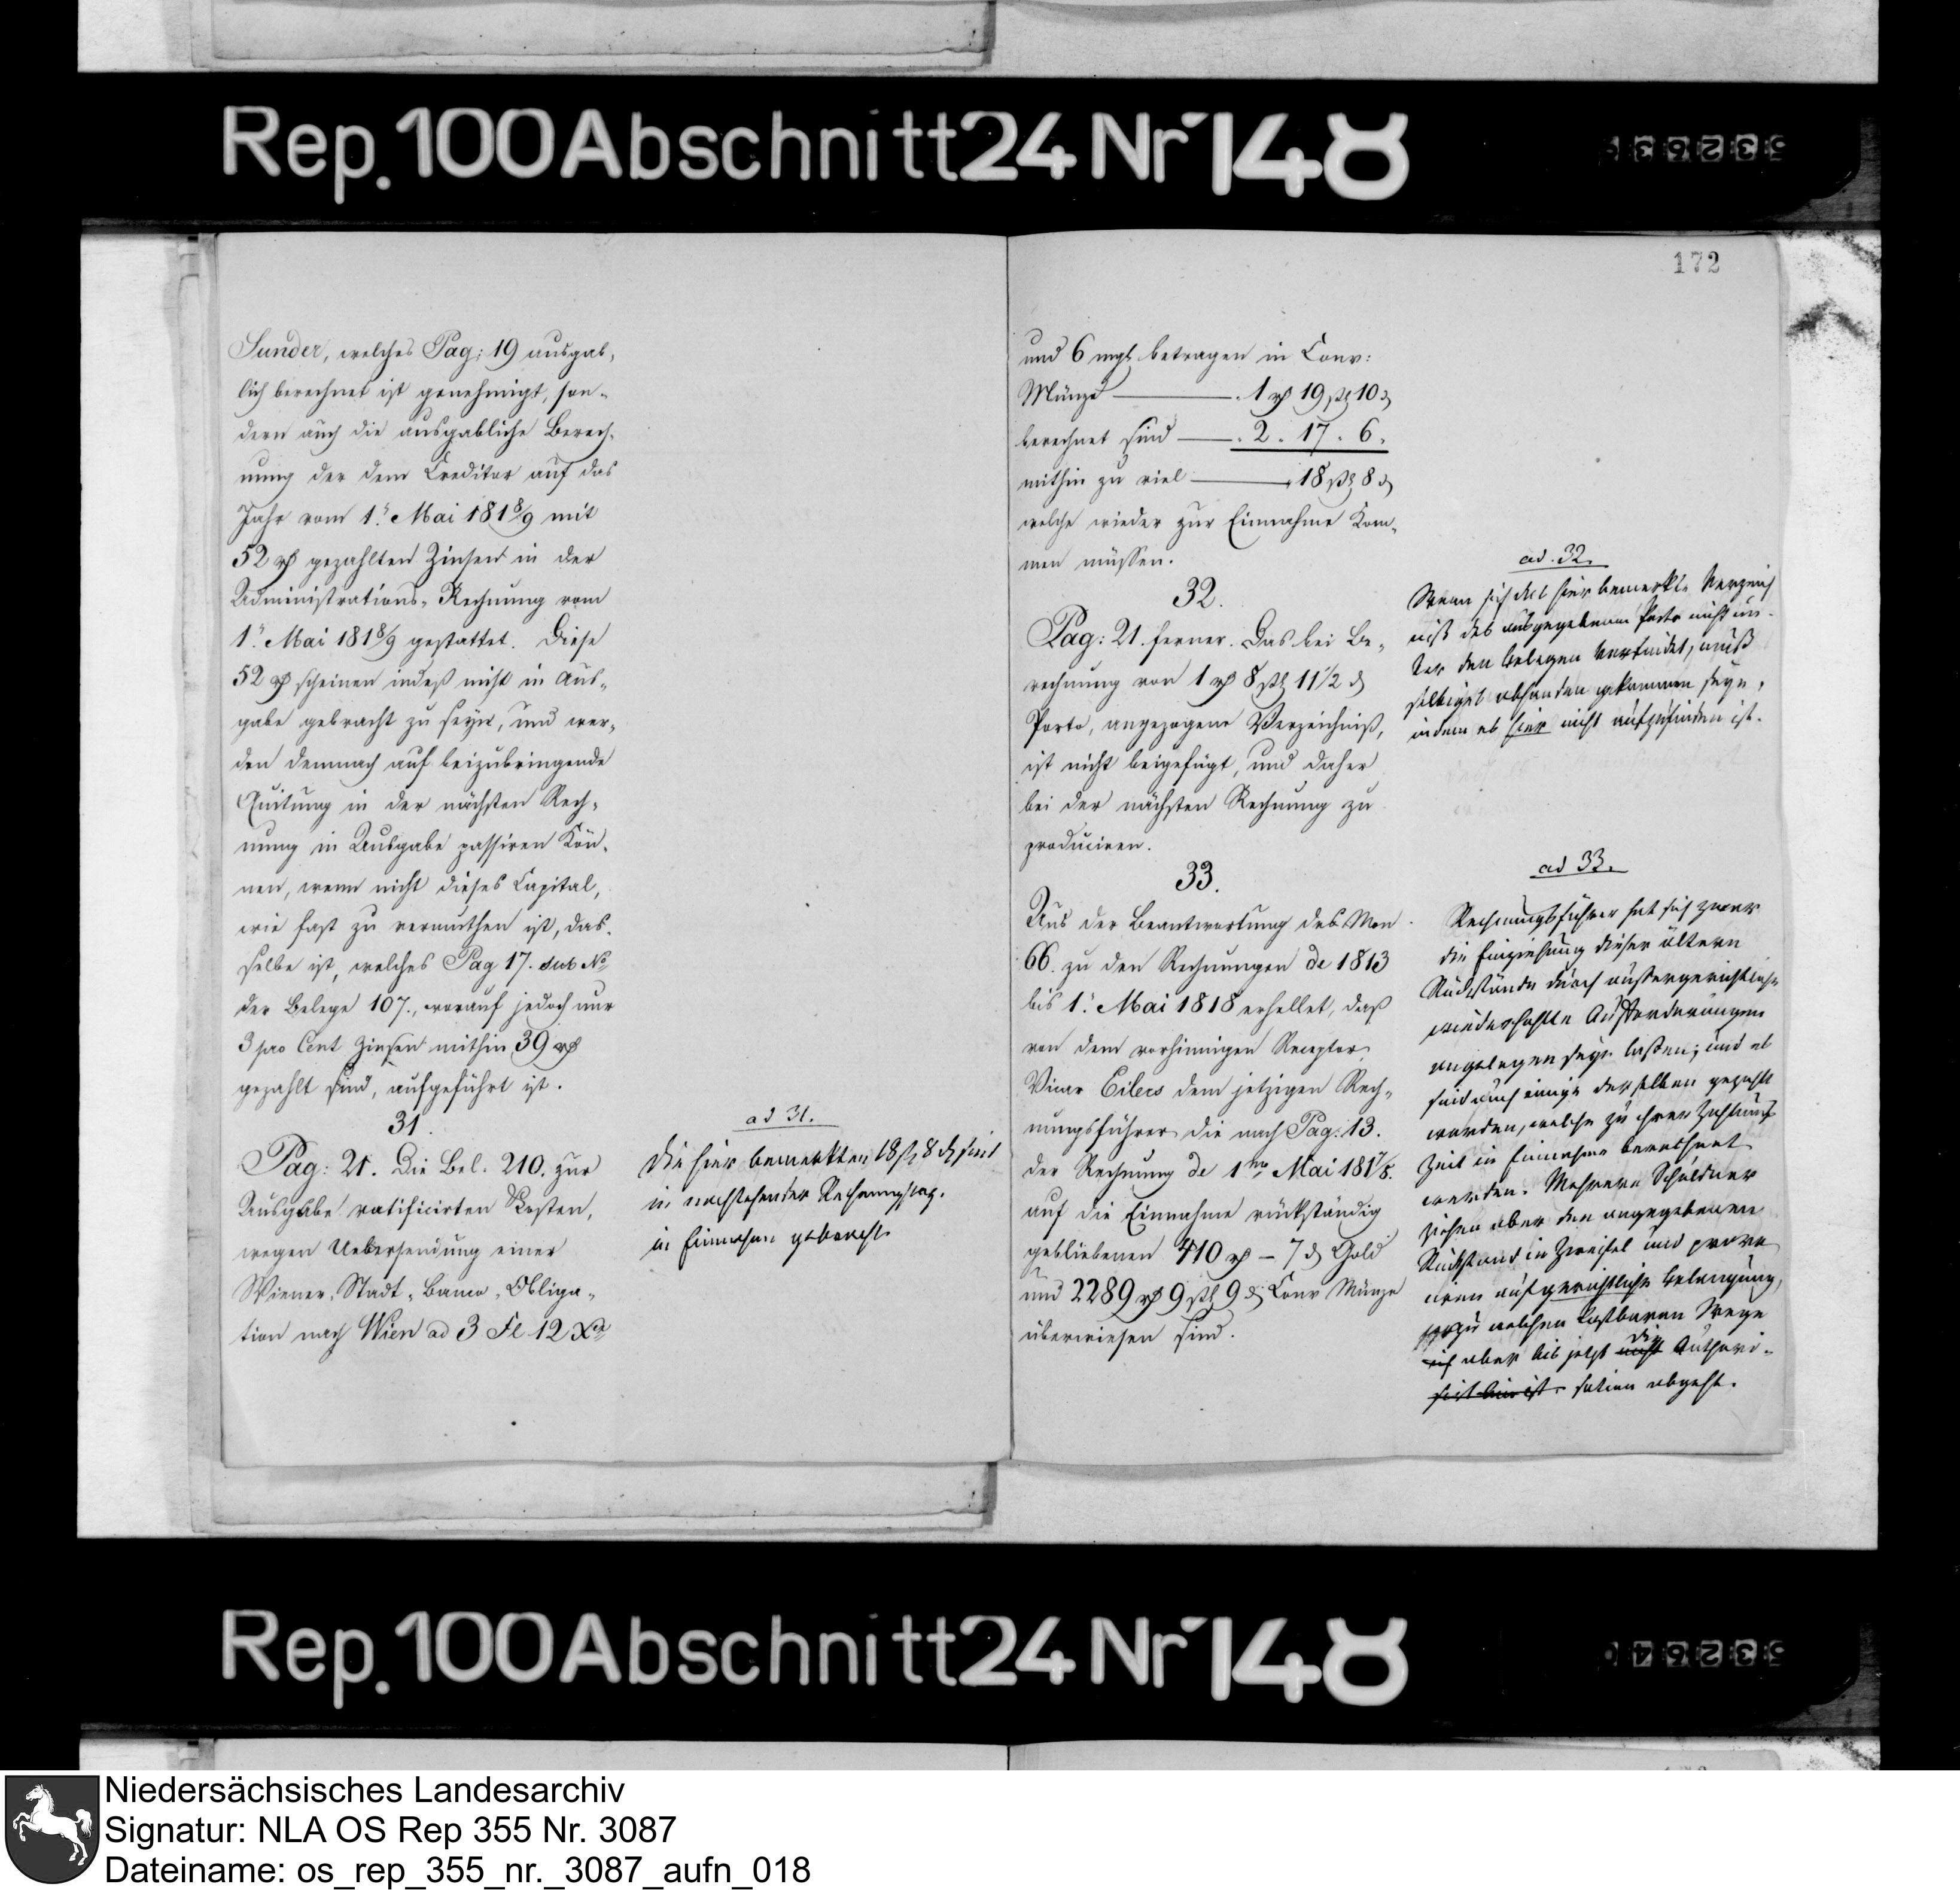 Rep. 100 Abschnitt 24 Nr 148
Sunder, welches Pag: 19 ausgab-
lich berechnet ist genehmigt, son-
dern auch die ausgabliche Berech-
nung der dem Creditor auf das
Jahr vom 1t Mai 1818/9 mit
52 rß gezahlten Zinsen in der
Administrations-Rechnung vom
1t Mai 1818/9 gestattet. Diese
52 rß scheinen indeß nicht in Aus-
gabe gebracht zu seyn, und wer-
den demnach auf beizubringende
Quitung in der nächsten Rech-
nung in Ausgabe passiren Kön-
nen, wenn nicht dieses Capital,
wie fast zu vermuthen ist, das-
selbe ist, welches Pag 17. sub No
der Belege 107., worauf jedoch nur
3 pro Cent Zinsen mithin 39 rß
gezahlt sind, aufgeführt ist.
31.
Pag: 21. Die Bel. 210. zur
Ausgabe ratificirten Kosten,
wegen Uebersendung einer
Wiener-Stadt-Banco-Obliga-
tion nach Wien ad 3 Fl 12 Xr
ad 31.
Die hier bemerkten 18 ß 8 d sind
in nachstehender Rechnung pag.
in Einnahme gebracht.
172
und 6 mgl betragen in Conv:
Münze 1 rß 19 ßl 10 d
berechnet sind 2. 17. 6.
mithin zu viel 18 ßl 8 d
welche wieder zur Einnahme Kom-
men müssen.
32.
Pag: 21. ferner. Das bei Be-
rechnung von 1 rß 8 ßl 11 1/2 d
Porto, angezogene Verzeichniß,
ist nicht beigefügt, und daher
bei der nächsten Rechnung zu
produciren.
33.
Aus der Beantwortung des Mon
66. zu den Rechnungen de 1813
bis 1t Mai 1818 erhellet, daß
von dem vorhinnigen Receptor
Vicar Eilers dem jetzigen Rech-
nungsführer die nach Pag: 13.
der Rechnung de 1mo Mai 1817/8.
auf die Einnahme rückständig
gebliebenen 410 rß – 7 d Gold
und 2289 rß 9 ßl 9 d Conv Münze
überwiesen sind.
ad. 32.
Wenn sich das hier bemerkte Verzeich
niß des ausgegebenen Porto nicht un-
ter den Belegen vorfindet, muß
selbiges abhanden gekommen seyn,
indem es hier nicht aufzufinden ist.
ad 33.
Rechnungsführer hat sich zwar
die Einziehung dieser ältern
Rückstände durch außergerichtliche
wiederhohlte Aufforderungen
angelegen seyn laßen; und es
sind auch einige derselben gezahlt
worden, welche zu ihrer Zahlungs
Zeit in Einnahme berechnet
werden. Mehrere Schuldner
ziehen aber den angegebenen
Rückstand in Zweifel und provo
ciren auf gerichtliche Belangung,
zu welchem kostbaren Wege
ich aber bis jetzt nicht die Authori-
sirt bin ist. sation abgeht.
Rep. 100 Abschnitt 24 Nr 148
Niedersächsisches Landesarchiv
Signatur: NLA OS Rep 355 Nr. 3087
Dateiname: os_rep_355_nr._3087_aufn_018